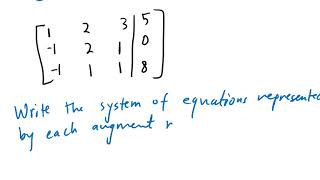 1 2 3 | 5
-1 2 1 | 0
-1 1 1 | 8
Write the system of equations represente
by each augment r